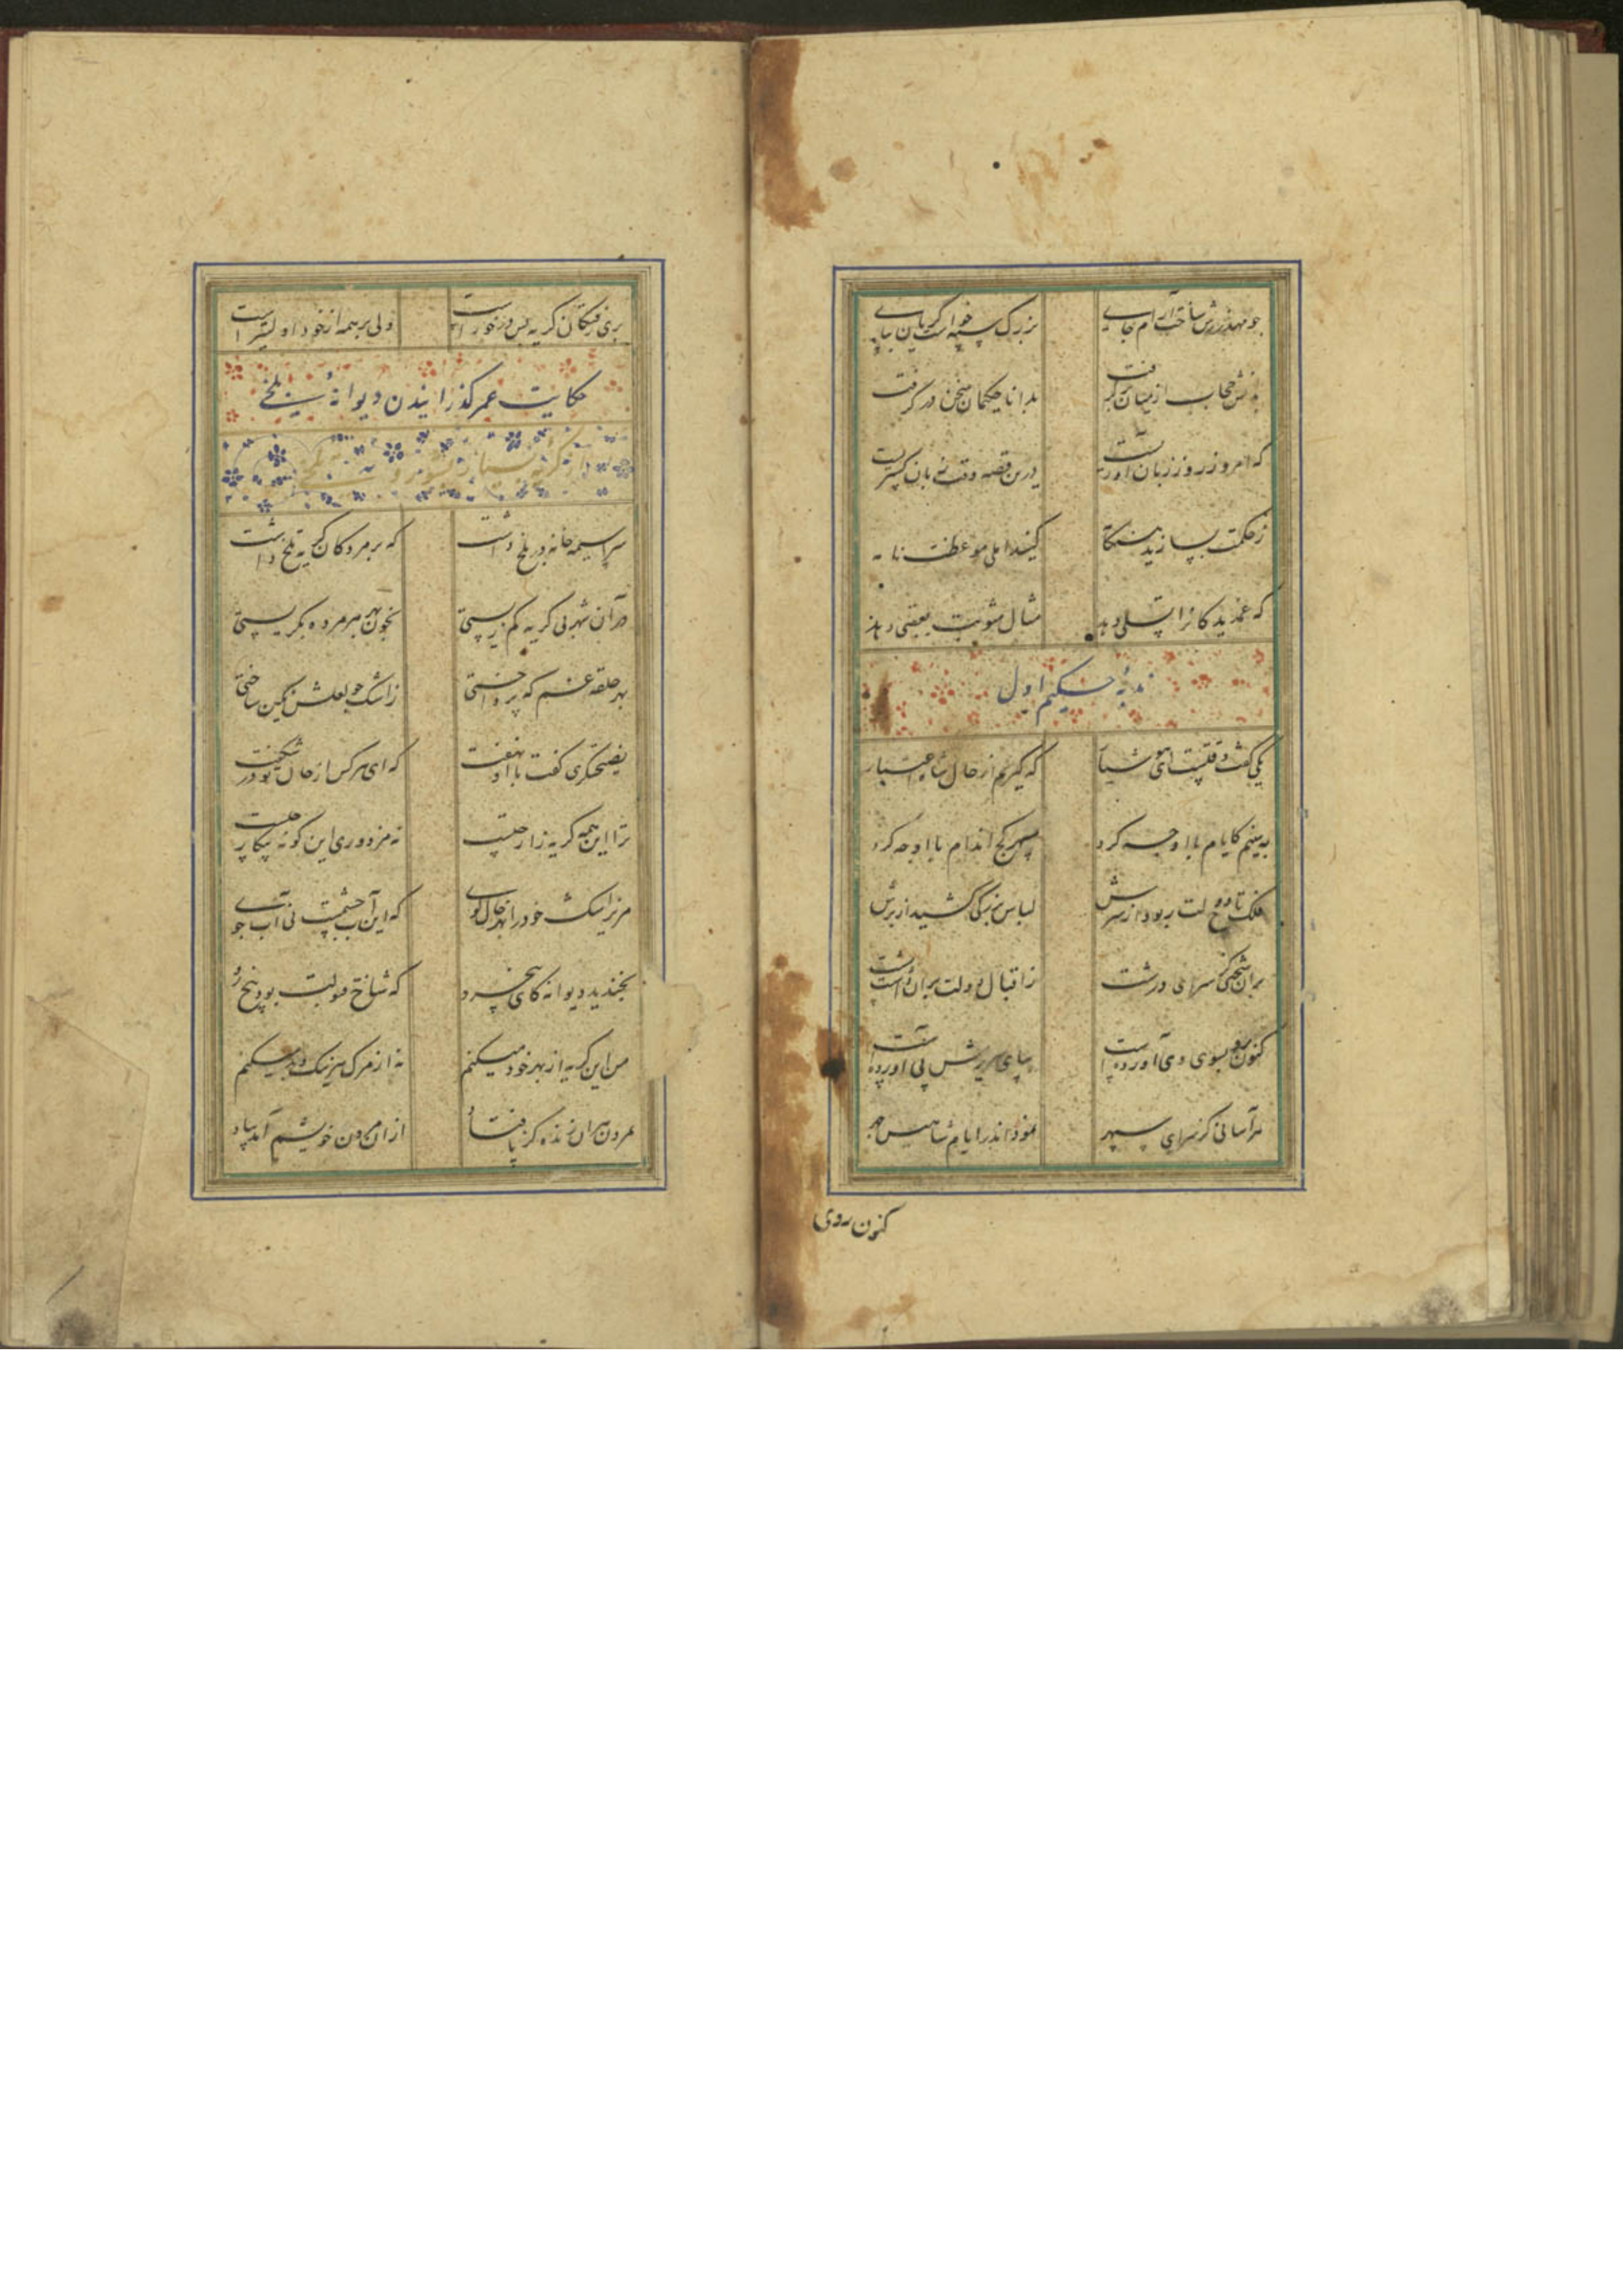 چو مهد زرش ساخت آرام جای بزرگ سپه خواست کاین
حجاب از میان برگرفت بدانا حکیمان سخن درگرفت
که امروز روز زبان آوریست درین قصه وقت زبان گستریست
ز حکمت کنند املی موعظت
که غمدیدکانرا تسلی دهد مثال مثوبت بعقبی دهد
ندبهٔ حکیم اول
یکی گفت وقتست ای که گیریم از حال شاه اعتبار
به بینیم کایام با او چه کرد سپهر کج اندام با او چه کرد
فلک تاج دولت ربود از سرش لباس بزرگی کشید از برش
سرای درشت ز اقبال و دولت بر آن داشت پشت
کنون رو بسوی وی آورده است بپای سریرش پی آورده است
هر آسانی کز سرای سپهر نمود اندر ایام شاهیش چهر
کنون روی
برین رفتگان گریه بس در خور است ولی بر همه از خود اولیتر است
حکایت عمر گذرانیدن دیوانهٔ بلخی
سراسیمه خانه در بلخ داشت که بر مردگان گریهٔ تلخ داشت
در آن شهر بی گریه کم زیستی بخون بهر هر مرده بگریستی
بهر حلقهٔ غم که پرداختی ز اشک چو لعلش نگین ساختی
نصیحتگری گفت با او نهفت که ای هر کس از حال تو در شگفت
ترا این همه گریهٔ زار چیست نه مزدوری این گونه پیکار چیست
مریز اشک خود را بهر خاک کوی که این آب چشمست نی آب جوی
بخندید دیوانه کای که شاخ
من این گریه از بهر خود میکنم نه از مرگ هر نیک و بد میکنم
بمردن هر آن زنده کز پا فتاد از آن مردن خویشم آمد بیاد